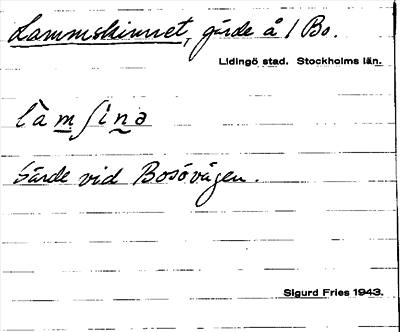 Lammskinnet, gärde å 1 Bo.
Lidingö stad. Stockholms län.
làmʃinə
Gärde vid Bosövägen.
Sigurd Fries 1943.